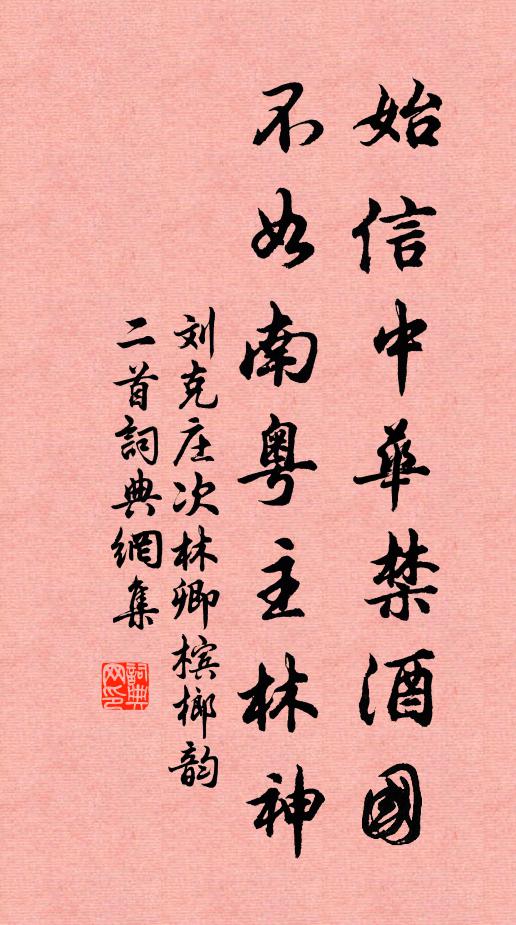 始信中華禁酒國
不如南粤主林神
刘克庄次林卿檳榔韵
二首詞典網集
詞典网印